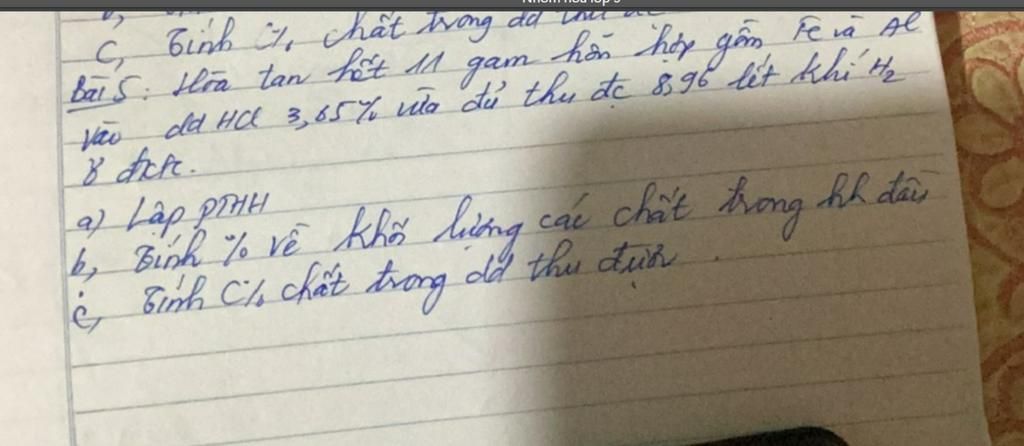 C, Tính C% chất trong dd thu đc
Bài 5: Hòa tan hết 11 gam hỗn hợp gồm Fe và Al
vào dd HCl 3,65% vừa đủ thu đc 8,96 lít khí H2
ở đktc.
a) Lập PTHH
b, Tính % về khối lượng các chất trong hh đầu
c, Tính C% chất trong dd thu được.